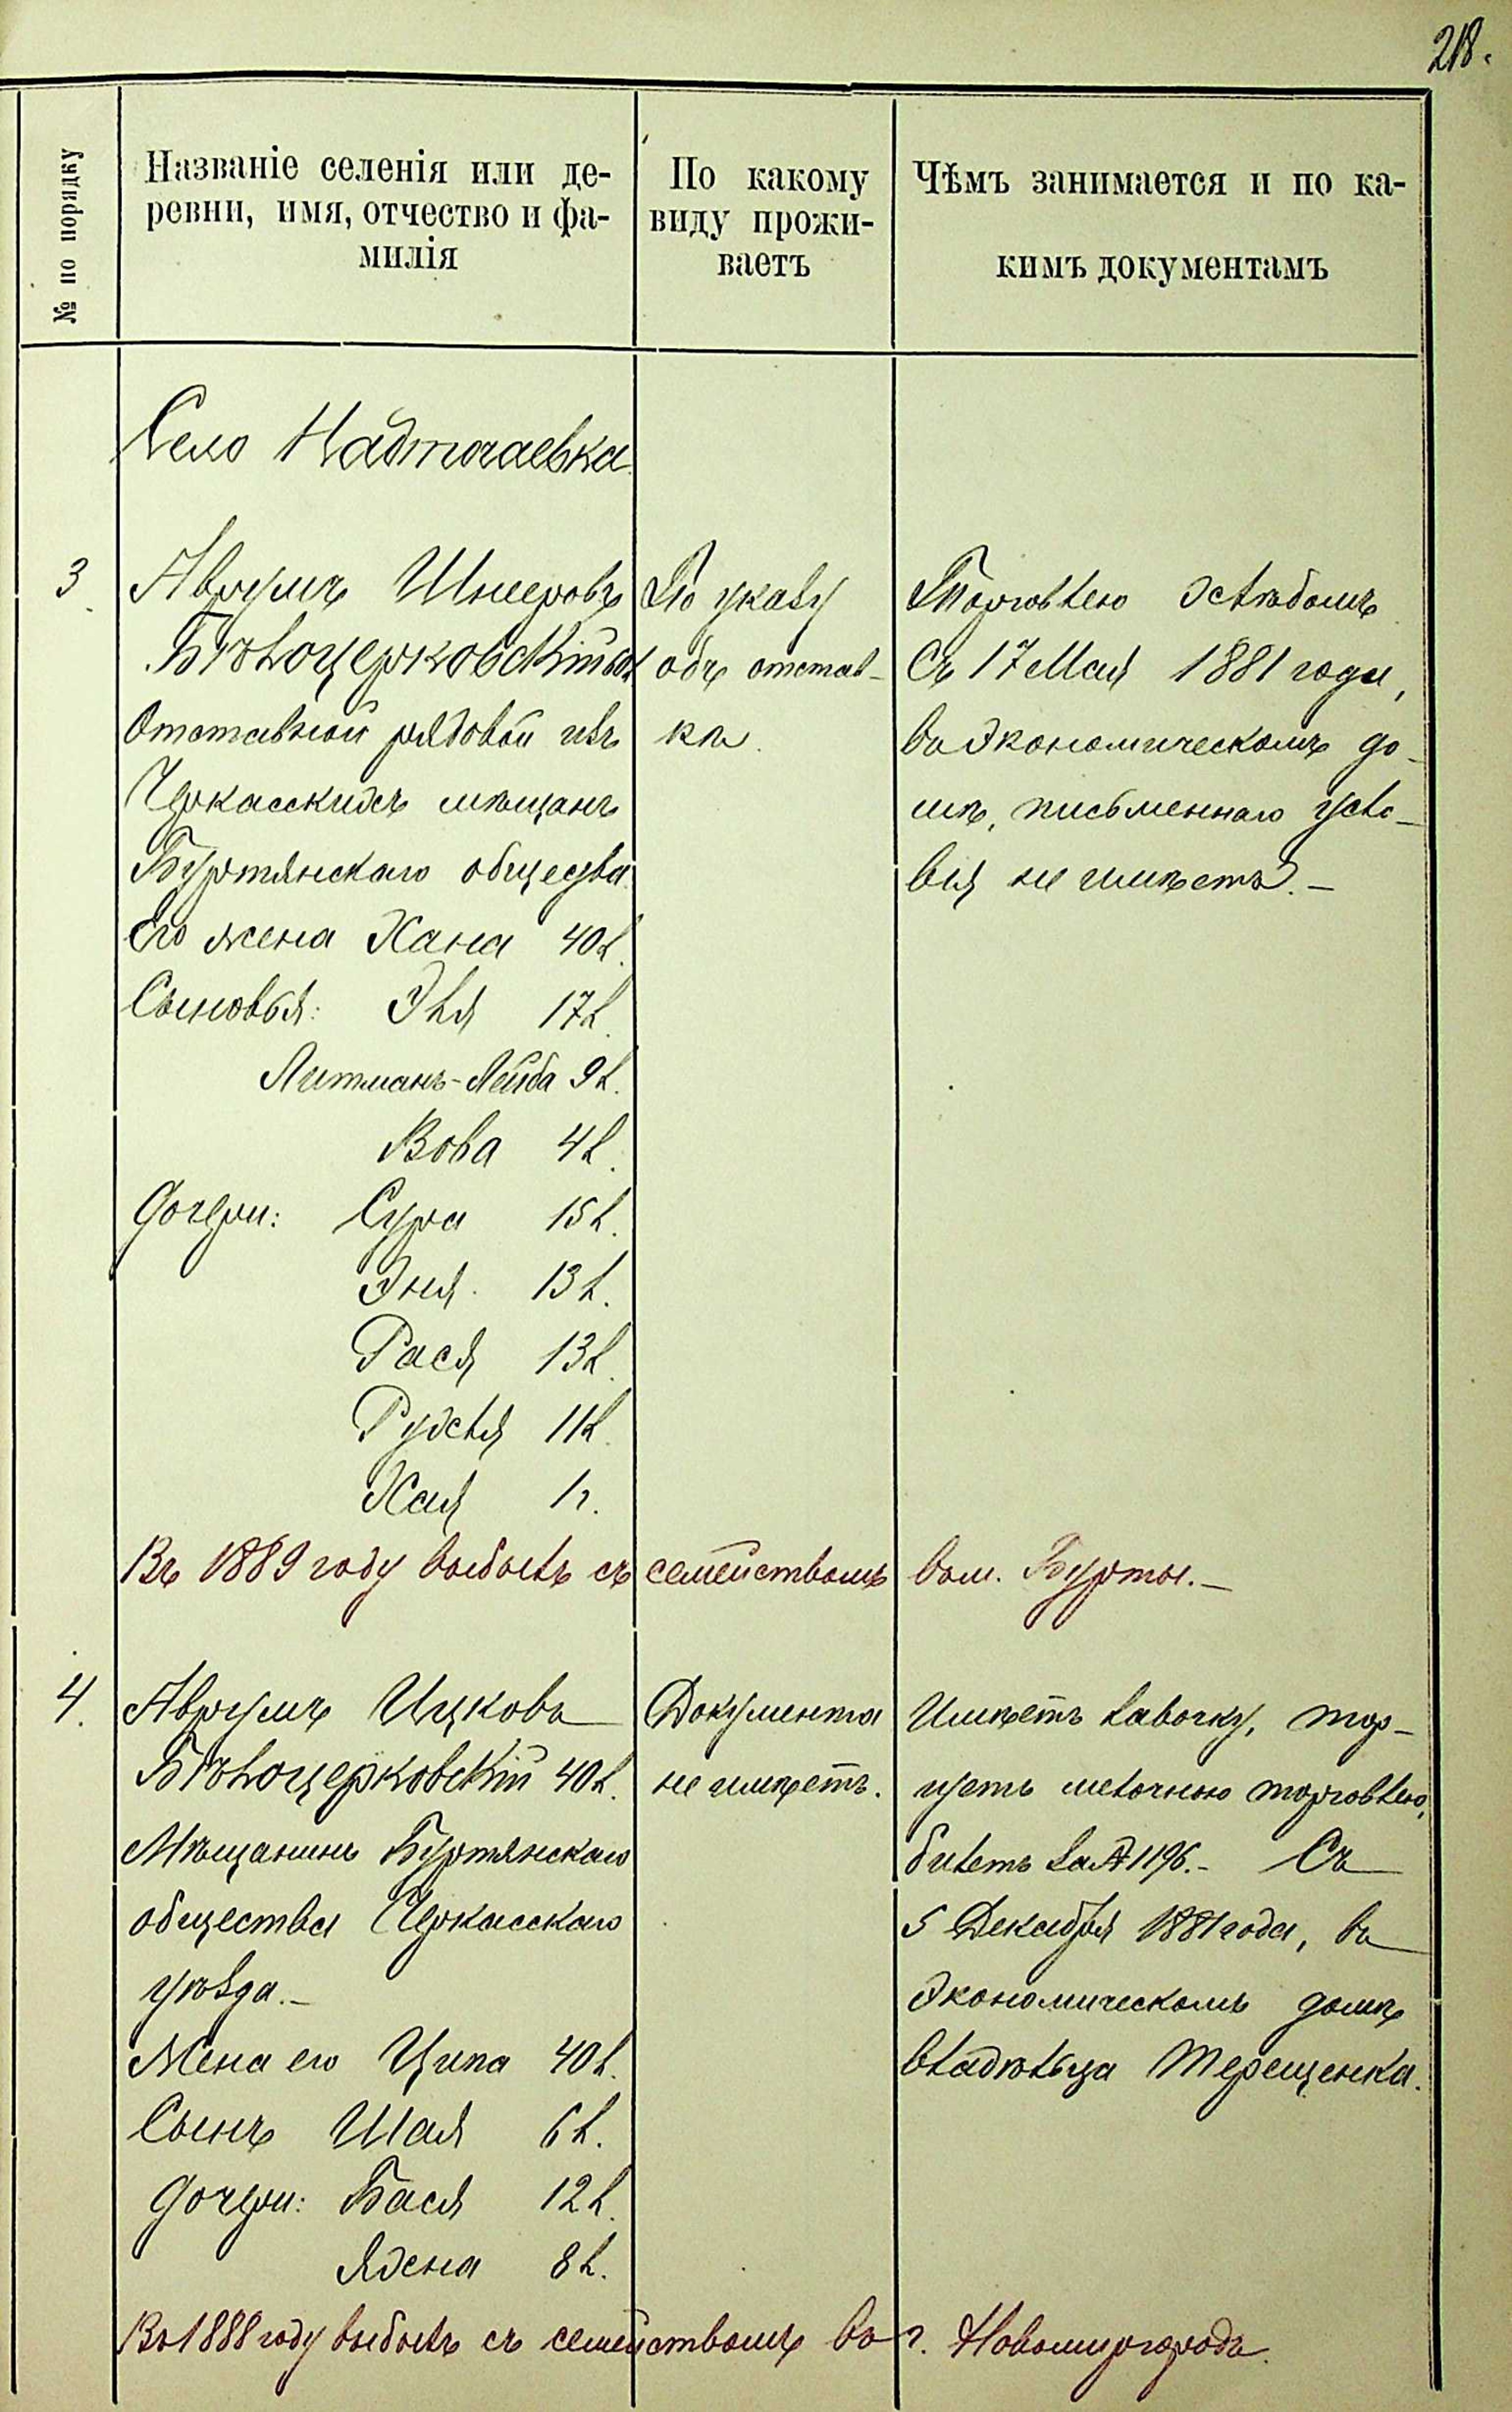 218.
№ по порядку
Названіе селенія или де-
ревни, имя, отчество и фа-
милія
По какому
виду прожи-
ваетъ
Чѣмъ занимается и по ка-
кимъ документамъ
Село Надточаевка
3.
Аврумъ Шнеровъ
Бѣлоцерковскій 50 л
Отставной рядовой изъ
Черкасскихъ мѣщанъ
Буртянскаго общества
Его жена Хана 40 л.
Сыновья: Эля 17 л.
Литманъ-Лейба 9 л.
Вова 4 л.
Дочери: Сура 15 л.
Эня. 13 л.
Рася 13 л.
Рухля 11 л.
Хая 1 г.
По указу
объ отстав-
кѣ.
Торговлею хлѣбомъ
Съ 17 Мая 1881 года,
въ экономическомъ до-
мѣ, письменнаго усло-
вія не имѣетъ.-
Въ 1889 году выбылъ съ семействомъ въ м. Бурты.-
4.
Аврумъ Ицковъ
Бѣлоцерковскій 40 л.
Мѣщанинъ Буртянскаго
общества Черкасскаго
уѣзда.-
Жена его Ципа 40 л.
Сынъ Шая 6 л.
Дочери: Бася 12 л.
Яхна 8 л.
Документа
не имѣетъ.
Имѣетъ лавочку, тор-
гуетъ мелочною торговлею,
билетъ за № 1196.- Съ
5 Декабря 1881 года, въ
экономическомъ домѣ
владѣльца Терещенка.
Въ 1888 году выбылъ съ семействомъ въ г. Новомиргородъ.